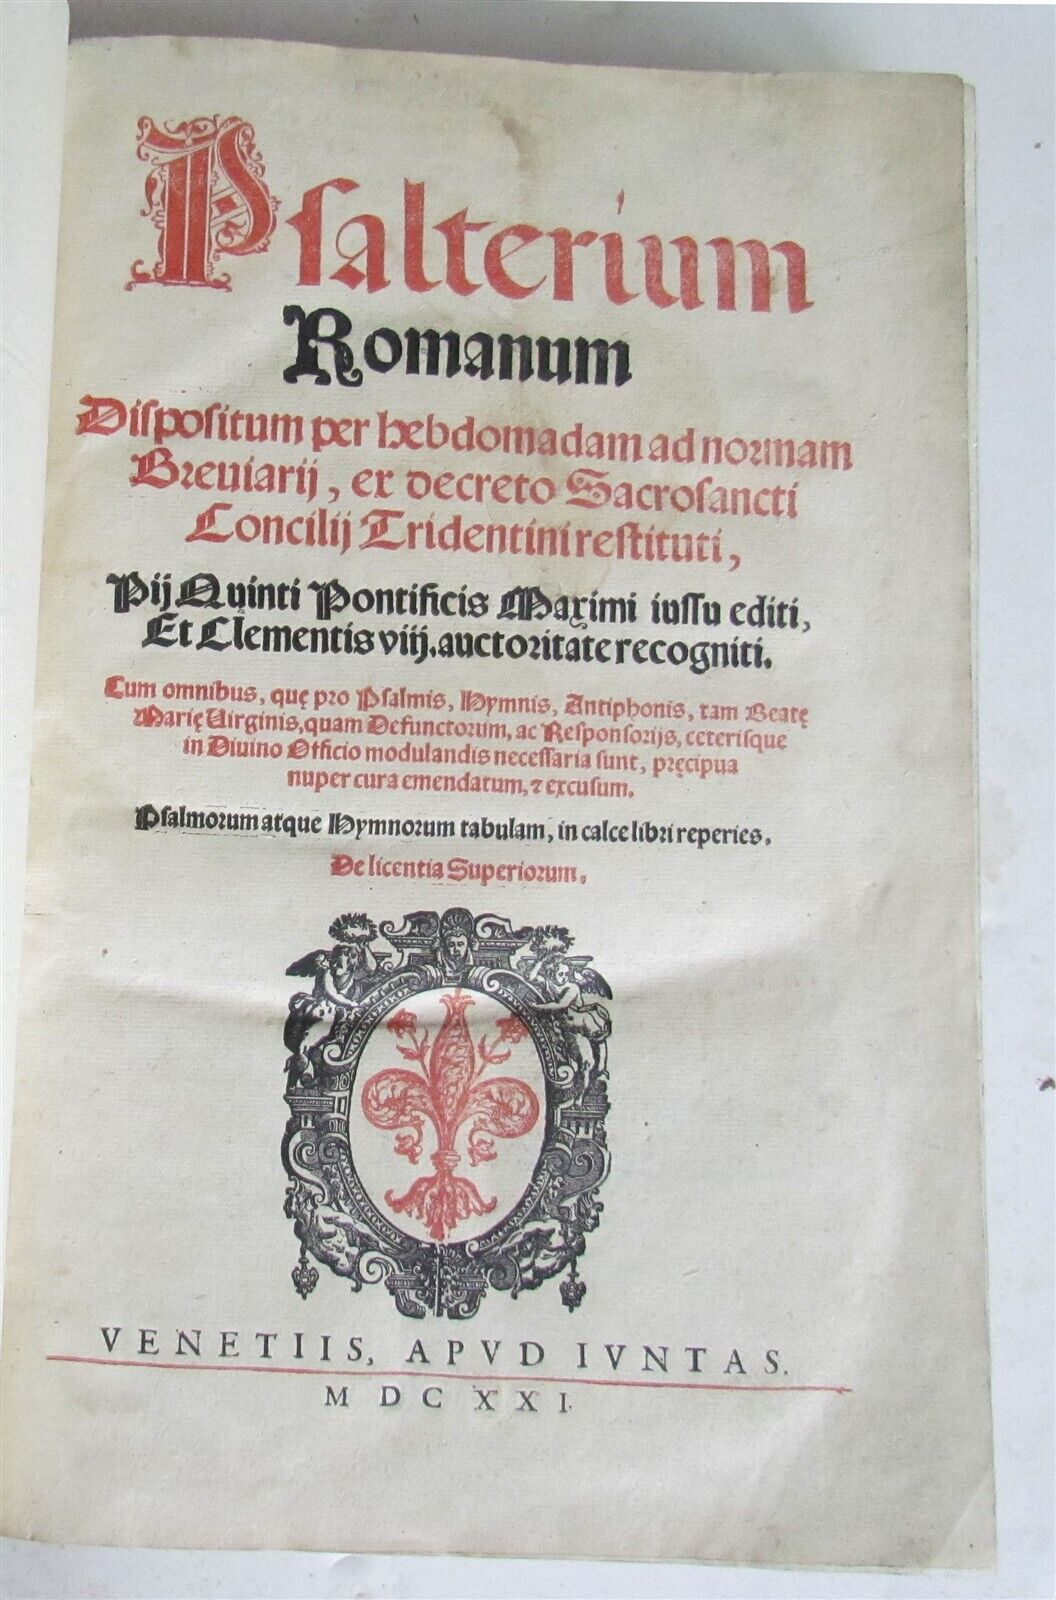 Pſalterium
Romanum
Diſpoſitum per hebdomadam ad normam
Breuiarij, ex decreto Sacroſancti
Concilij Tridentini reſtituti,
Pij Quinti Pontificis Maximi iuſſu editi,
Et Clementis viij. auctoritate recogniti.
Cum omnibus, quę pro Pſalmis, Hymnis, Antiphonis, tam Beatę
Marię Virginis, quam Defunctorum, ac Reſponſorijs, ceteriſque
in Diuino Officio modulandis neceſſaria ſunt, pręcipua
nuper cura emendatum, ⁊ excuſum.
Pſalmorum atque Hymnorum tabulam, in calce libri reperies.
De licentia Superiorum.
VENETIIS, APVD IVNTAS.
MDCXXI.